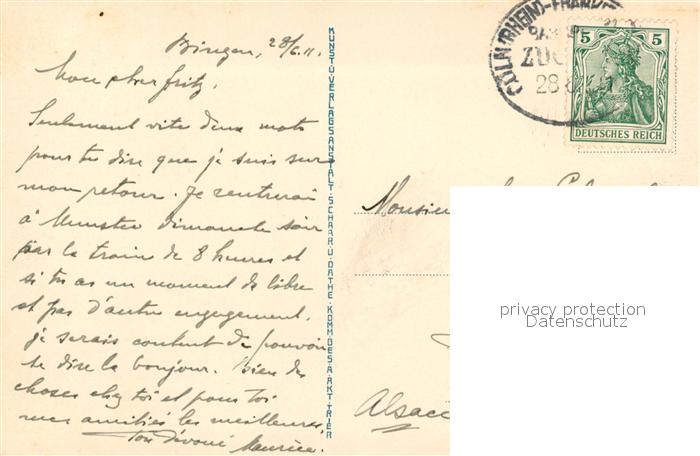 Bingen, 28/6.11.
Mon cher Fritz,
Seulement vite deux mots
pour te dire que je suis sur
mon retour. Je rentrerai
à Munster dimanche soir
par le train de 8 heures et
si tu as un moment de libre
et pas d'autre engagement,
je serais content de pouvoir
te dire le bonjour. Bien des
choses chez toi et pour toi
mes amitiés les meilleures,
Ton dévoué Maurice.
KUNST-U.VERLAGSANSTALT-SCHAAR U.DATHE-KOMM.GES.A.AKT.TRIER
CÖLN (RHEIN)-FRANKF
ZUG
28
5 5
DEUTSCHES REICH
Monsieur
Alsace
privacy protection
Datenschutz